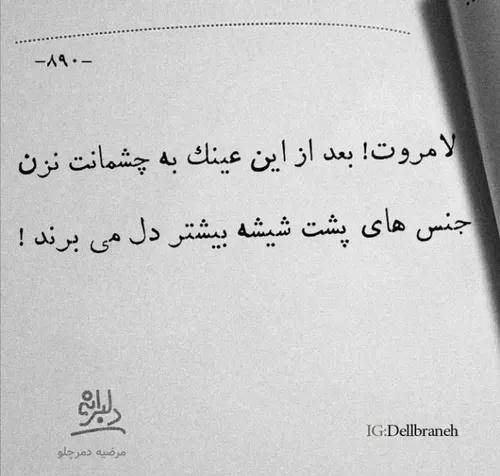 -۸۹۰-
لامروت! بعد از این عینك به چشمانت نزن
جنس های پشت شیشه بیشتر دل می برند !
دلبرانه
مرضیه دمرچلو
IG:Dellbraneh